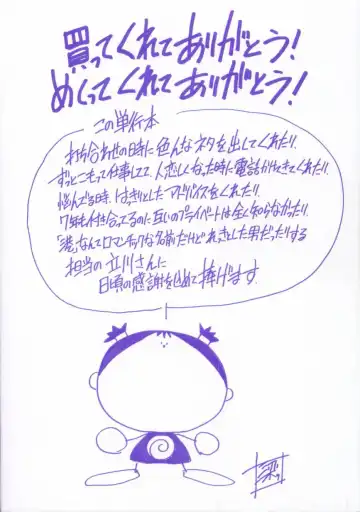 買ってくれてありがとう!
めくってくれてありがとう!
この単行本
打ち合わせの時に色んなネタを出してくれたり、
ずっとこもって仕事してて、人恋しくなった時に電話がかかってきてくれたり、
悩んでる時、はっきりとしたアドバイスをくれたり、
7年も付き合ってるのに互いのプライベートは全く知らなかったり、
なんてロマンチックな名前だけどれっきとした男だったりする
担当の立川さんに
日頃の感謝を込めて捧げます